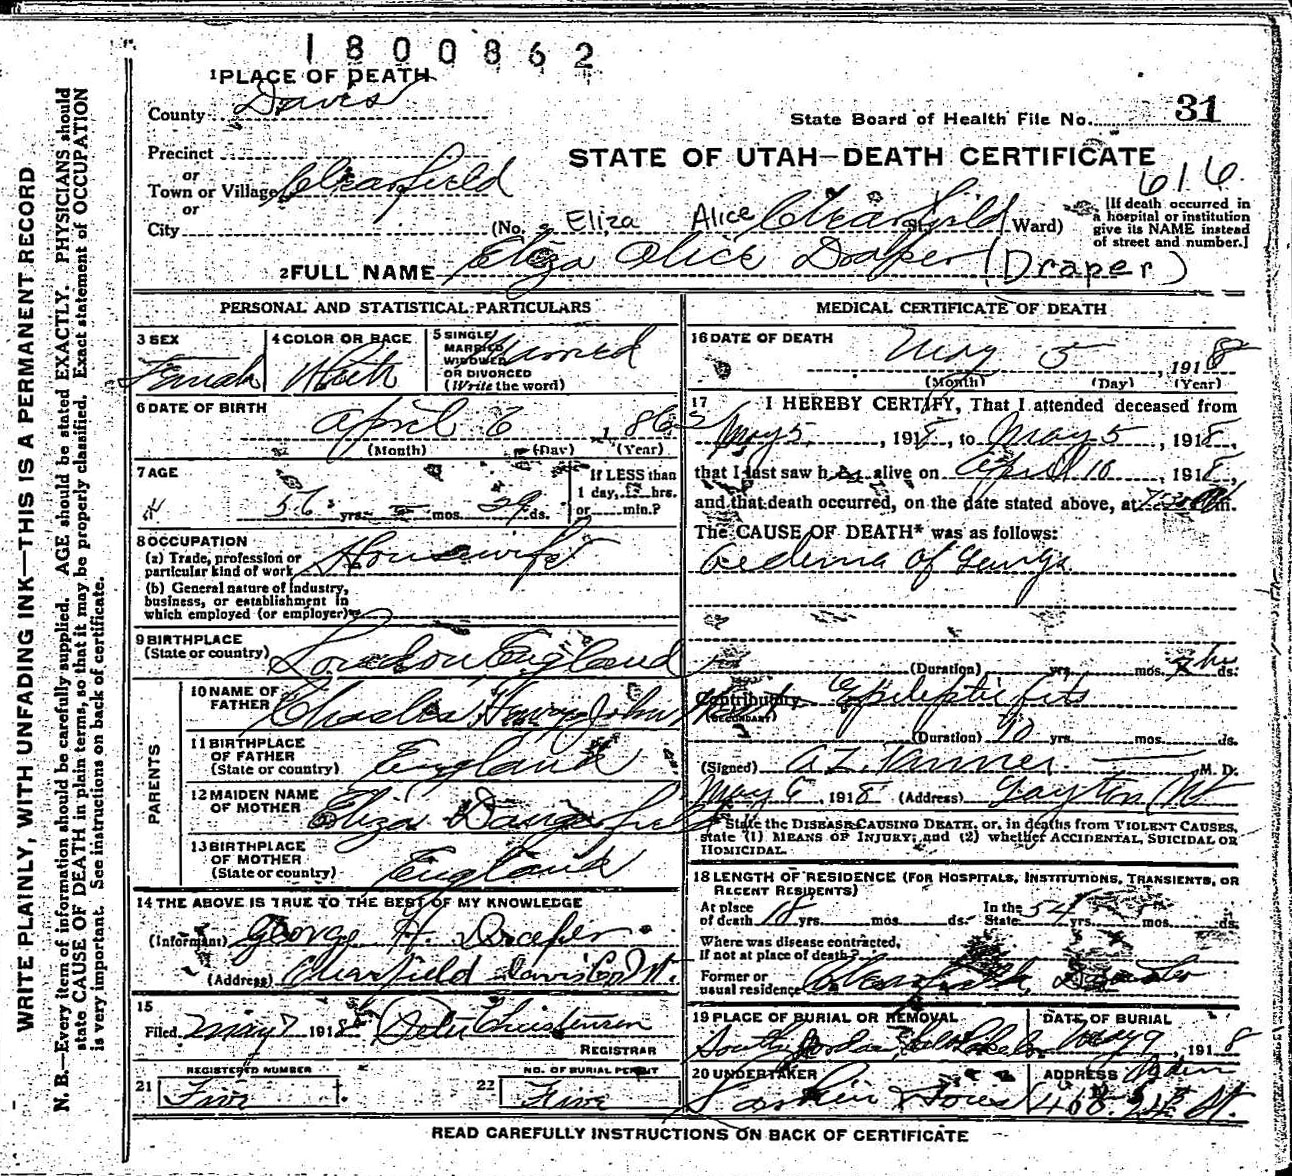 1800862
1 PLACE OF DEATH
County Davis
State Board of Health File No. 31
Precinct
or
STATE OF UTAH—DEATH CERTIFICATE
616.
Town or Village Clearfield
or
City (No. Eliza Alice Clearfield St. Ward)
[If death occurred in
a hospital or institution
give its NAME instead
of street and number.]
2 FULL NAME Eliza Alice Draper (Draper)
PERSONAL AND STATISTICAL PARTICULARS
3 SEX Female
4 COLOR OR RACE White
5 SINGLE
MARRIED
WIDOWED
OR DIVORCED
(Write the word)
Married
6 DATE OF BIRTH
April 6, 186
(Month) (Day) (Year)
7 AGE
56 yrs. mos. 29 ds.
If LESS than
1 day, hrs.
or min.?
8 OCCUPATION
(a) Trade, profession or
particular kind of work Housewife
(b) General nature of industry,
business, or establishment in
which employed (or employer)
9 BIRTHPLACE
(State or country) London, England
PARENTS
10 NAME OF
FATHER Charles Henry John
11 BIRTHPLACE
OF FATHER
(State or country) England
12 MAIDEN NAME
OF MOTHER Eliza Dangerfield
13 BIRTHPLACE
OF MOTHER
(State or country) England
14 THE ABOVE IS TRUE TO THE BEST OF MY KNOWLEDGE
(Informant) George H. Draper
(Address) Clearfield Davis Co Ut.
15
Filed May 7 1918 Peter Christensen
REGISTRAR
REGISTERED NUMBER
21 Five
NO. OF BURIAL PERMIT
22 Five
MEDICAL CERTIFICATE OF DEATH
16 DATE OF DEATH
May 5, 1918
(Month) (Day) (Year)
17 I HEREBY CERTIFY, That I attended deceased from
May 5, 1918, to May 5, 1918,
that I last saw her alive on April 10, 1918,
and that death occurred, on the date stated above, at m.
The CAUSE OF DEATH* was as follows:
Oedima of Lungs
(Duration) yrs. mos. ds.
Contributory Epileptic fits
(SECONDARY)
(Duration) yrs. mos. ds.
(Signed) A Z. Tanner. M. D.
May 6, 1918 (Address) Layton Ut
* State the DISEASE CAUSING DEATH, or, in deaths from VIOLENT CAUSES,
state (1) MEANS OF INJURY; and (2) whether ACCIDENTAL, SUICIDAL OR
HOMICIDAL.
18 LENGTH OF RESIDENCE (FOR HOSPITALS, INSTITUTIONS, TRANSIENTS, OR
RECENT RESIDENTS)
At place
of death 18 yrs. mos. ds.
In the
State 54 yrs. mos. ds.
Where was disease contracted,
if not at place of death?
Former or
usual residence
19 PLACE OF BURIAL OR REMOVAL
South Jordan, Salt Lake Co
DATE OF BURIAL
May 9, 1918
20 UNDERTAKER
Larkin & Sons
ADDRESS Ogden
468. 24th St.
READ CAREFULLY INSTRUCTIONS ON BACK OF CERTIFICATE
WRITE PLAINLY, WITH UNFADING INK—THIS IS A PERMANENT RECORD
N. B.—Every item of information should be carefully supplied. AGE should be stated EXACTLY. PHYSICIANS should
state CAUSE OF DEATH in plain terms, so that it may be properly classified. Exact statement of OCCUPATION
is very important. See instructions on back of certificate.